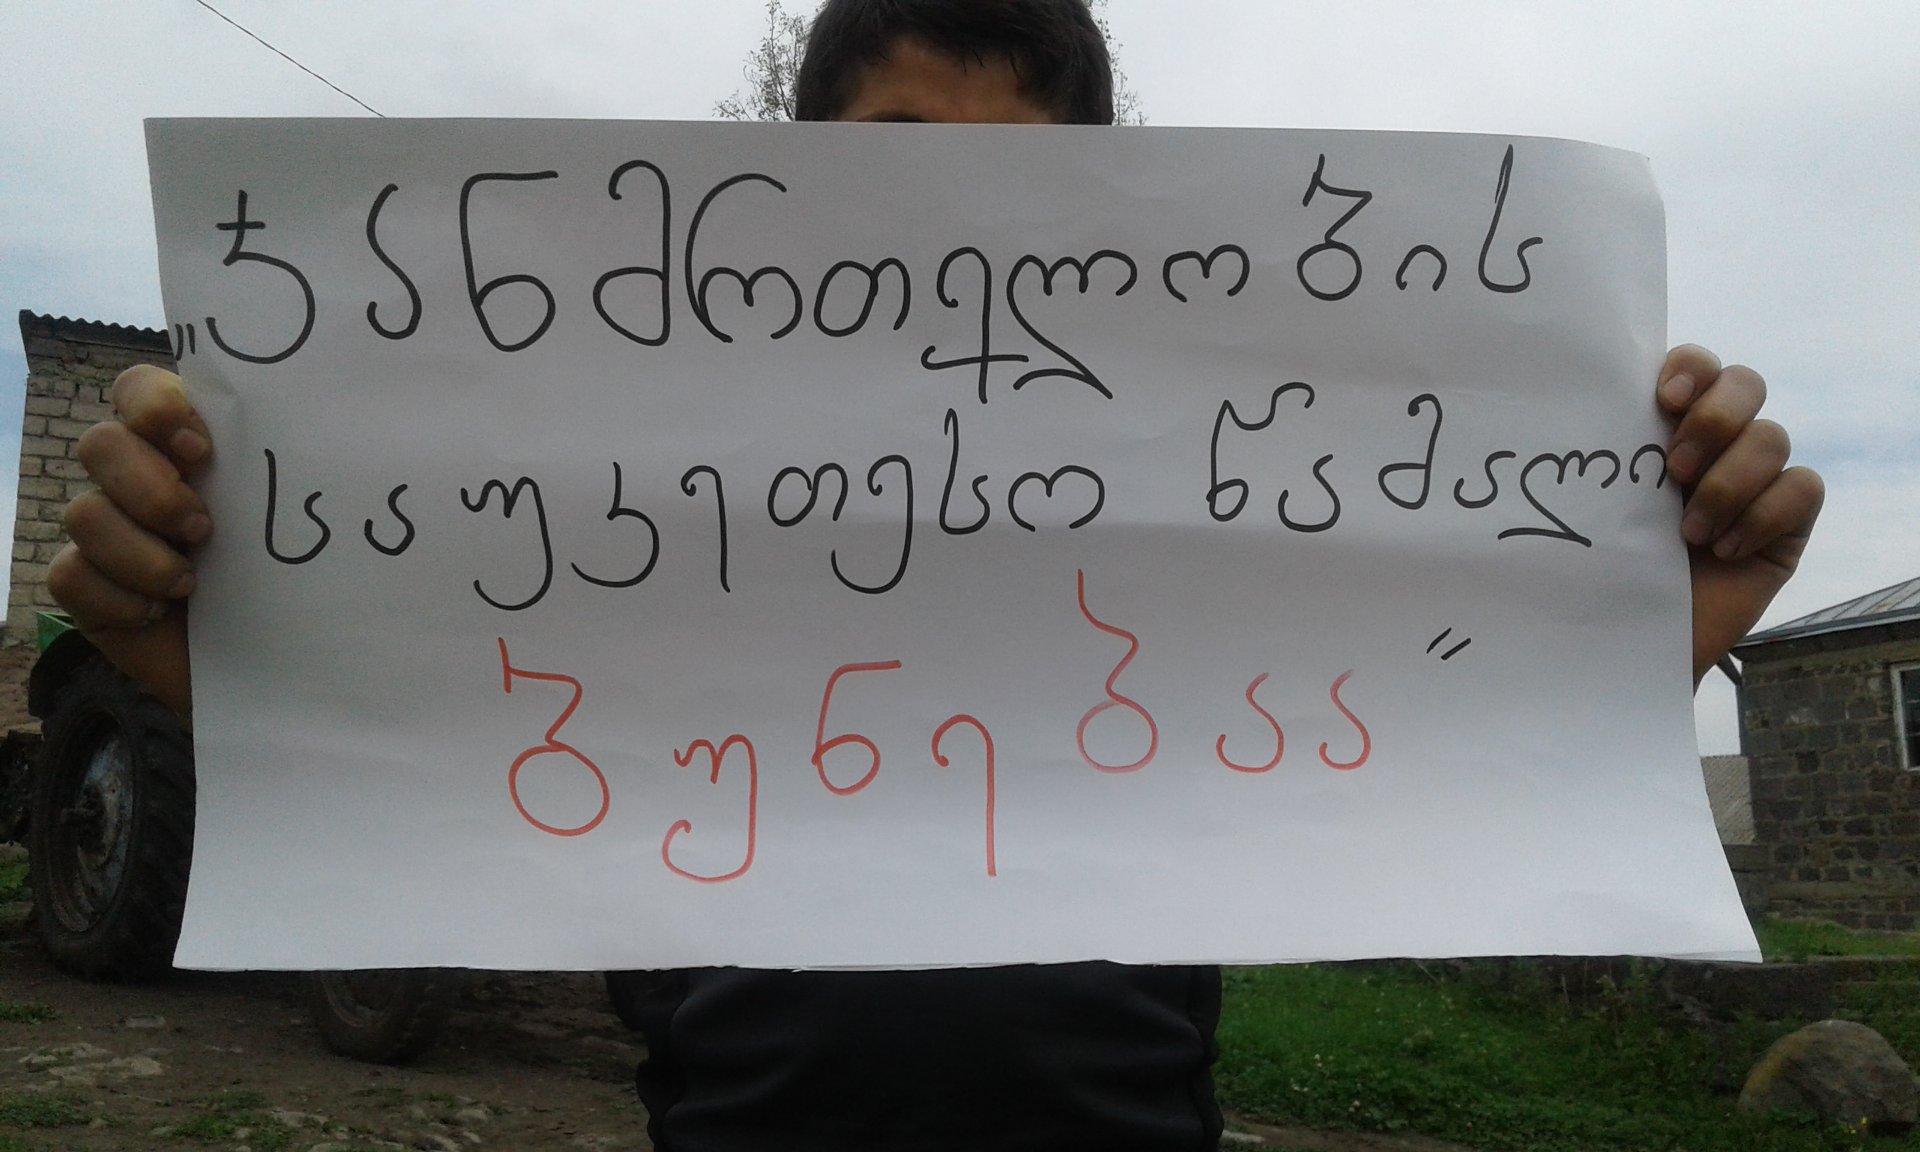 „ჯანმრთელობის
საუკეთესო წამალი
ბუნებაა"